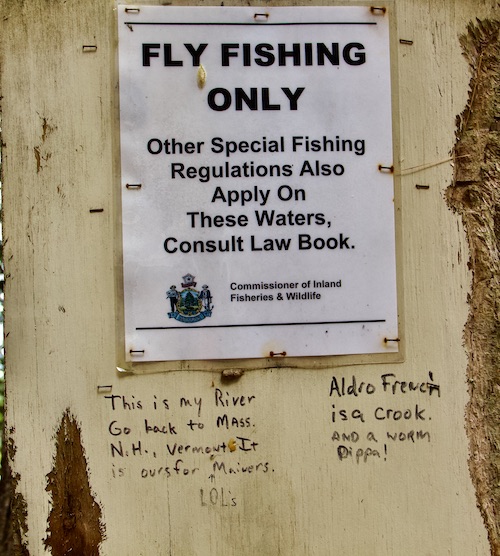 FLY FISHING
ONLY
Other Special Fishing
Regulations Also
Apply On
These Waters,
Consult Law Book.
Commissioner of Inland
Fisheries & Wildlife
This is my River
Go back to MASS.
N.H., Vermont It
is ours for Mainers.
LOL's
Aldro French
is a Crook.
AND a WORM
Dippa!